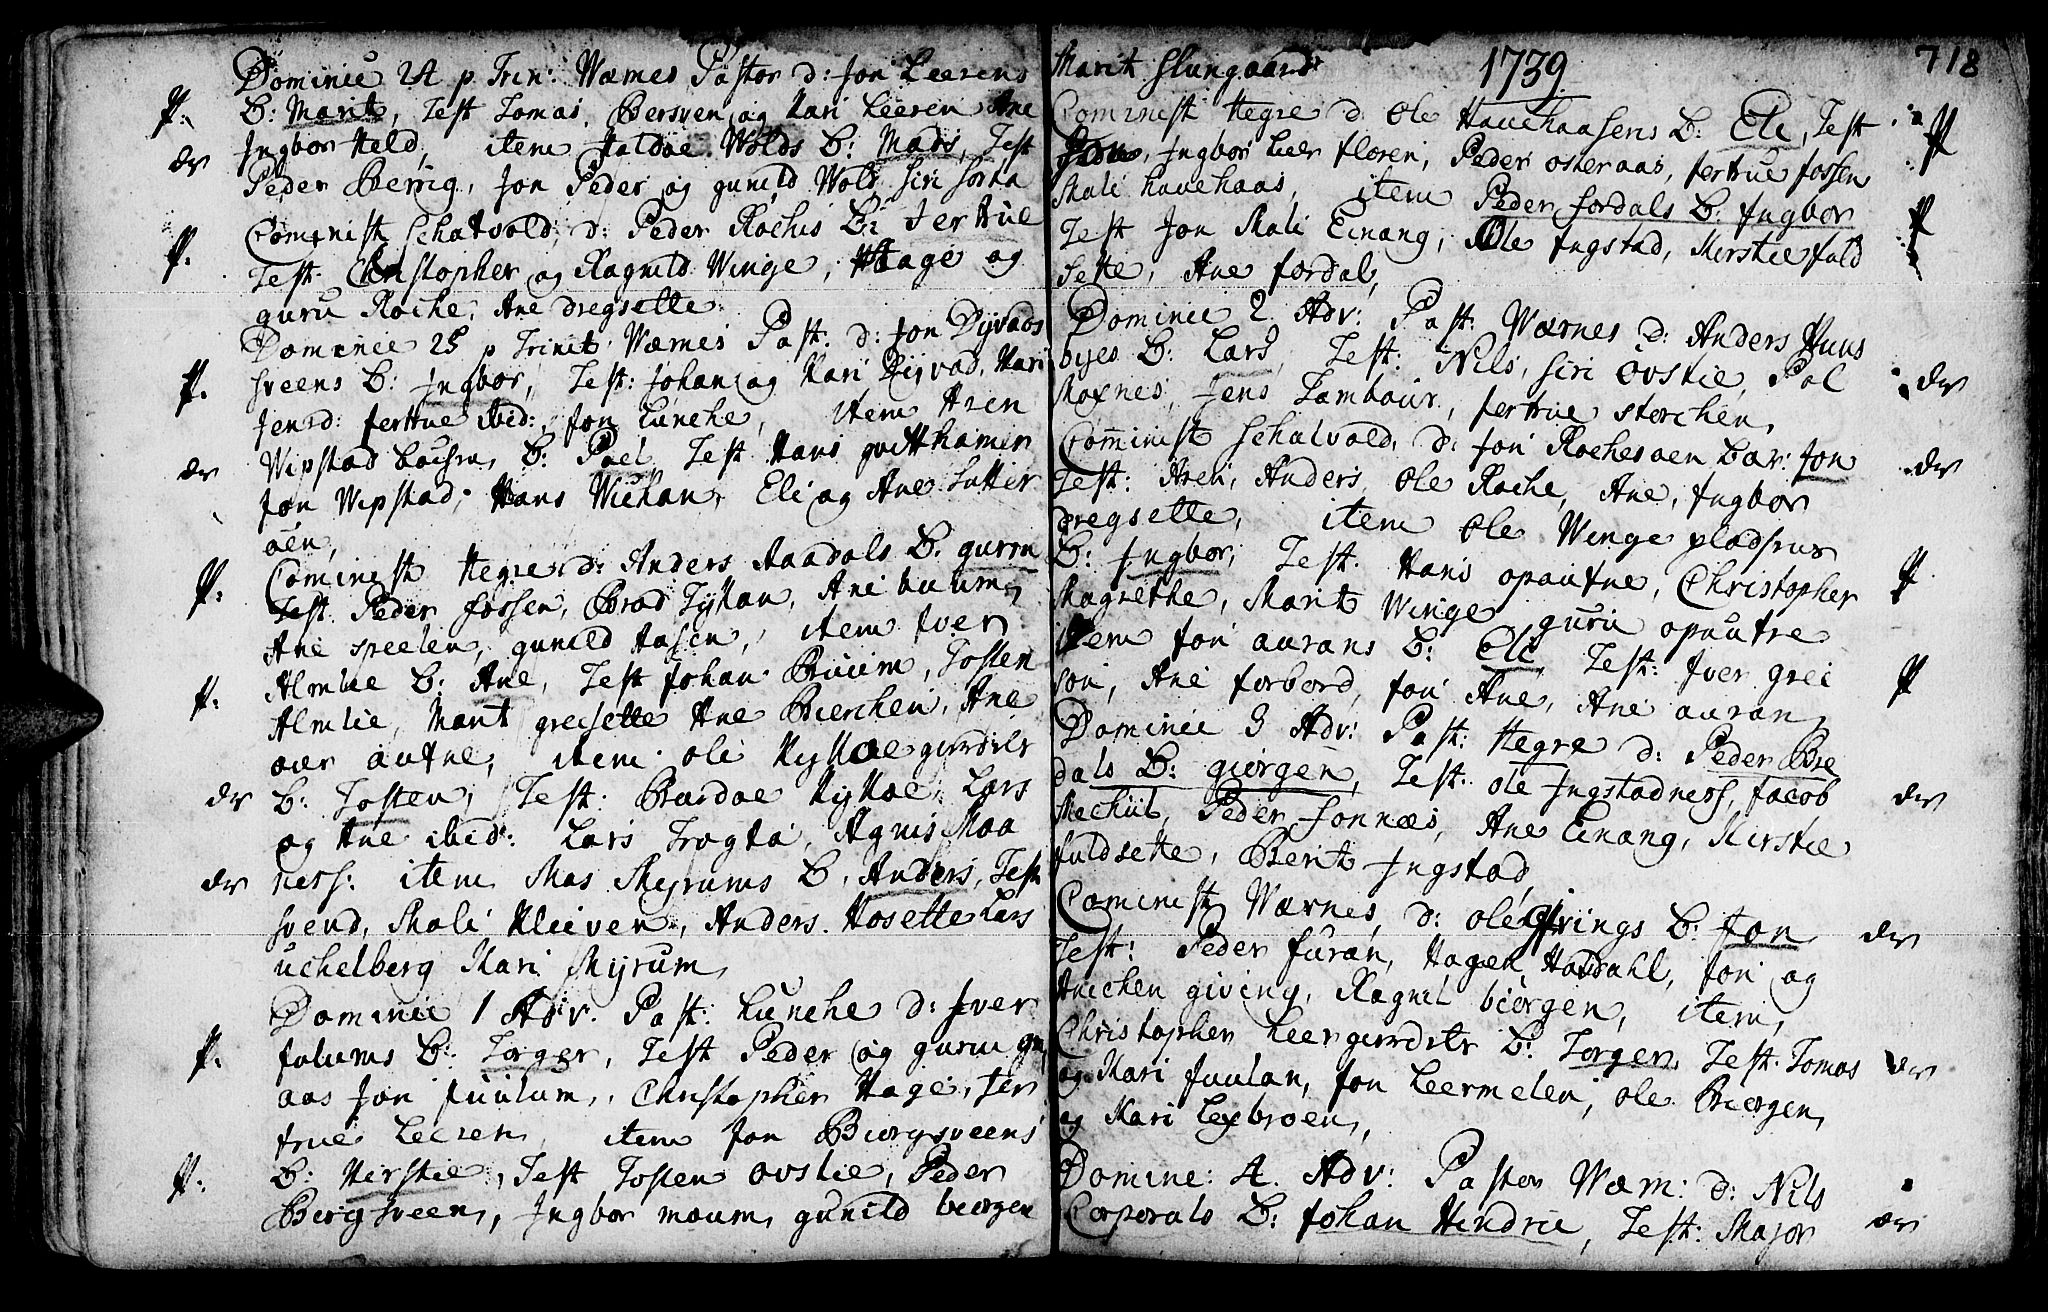 Dominic 24 p. Trin: Wærnes Pastor d: Jon Leerens
P. B: Marit, Test Tomas, Bersven, og Kari Leeren Ane
Ingbor Held item Haldoe Wolds B: Mads, Test
dr Peder Berrig, Jon Peder og gunild Wold siri sorta
Cominist schatvold d: Peder Rochis B: Jertrue
P. Test: Christopher og Ragnild Winge, Hage og
guru Roche, Ane dregsette
Dominic 25 p Trinit: Wærnes Past. d: Jon Dyvads
P. sveens B: Ingbor, Test: Johan og Kari Dyvad, Kari
Jensd: Jertrue ibid: Jon Lunche, item Aren
dr Wipstad B: Poel Test Hans
Jon Wipstad, Hans Wichan, Eli og Ane Sutter
øen,
P. Cominist Hegre d: Anders Aaadals B: gurru
Test Peder fossen, Brad Tyllan, Ane buum,
Ane speelen, gunild Aasen, item Iver
P. Almlie B: Ane, Test Johan Bruum, Josten
Almlie, Marit greisette Ane Bierchen, Ane
over autne, item ole Kykloe
dr B: Josten, Test: Bardoe Kykloe, Lars
og Ane ibid: Lars Trogta, Agnis Moa
dr ners: item Mas Myrums B: Anders, Test
svend, Mali Kleiven, Anders Hosette Lars
uchelberg Kari Myrum,
Dominic 1 Adv. Past: Lunche d: Iver
P. Julums B: Torger, Test Peder og guru
aas Jon Juulum, Christopher Hage, Jer
true Leeren, item Jon Biorgsveens
P. B: Kirstie, Test Josten ovslie, Peder
Bergsveen, Ingbor moum, gunild biorgen
Marit slungaard 1739 718
Cominist Hegre d: Ole Havehaasens B: Ele, Test P
Ingbor Leer floren, Peder osteraas, Jertrue fossen
Mali havehaas, item Peder fordals B: Ingbor P
Test Jon Mali Einang, Ole Ingstad, Kirstie fuld
sette, Ane fordal,
Dominic 2 Adv: Past: Wærnes d: Anders Huus
byes B: Lars, Test: Nils, siri ovstie, Pol dr
Moxnes, Jens Tambour, Jertrue storchen,
Cominist schatvold, d: Jon Rochesøen Bar: Jon dr
Test: Aren, Anders, Ole Roche, Ane, Ingbor
dregsette, item Ole Winge pladsens
B: Ingbor, Test: Hans opautne, Christopher P
Magrethe, Marit Winge guru opautne
item Jon aurans B: Ole Test: Iver grei P
son, Ane forbord, Jon Ane, Ane auran,
Dominic 3 Adv: Past: Hegre d: Peder Bre
dals B: giorgen, Test: ole Ingstadners, Jacob dr
Mechiil, Peder fonnæs, Ane Einang, Kirstie
fuldsette, Berit Ingstad,
Cominist Wærnes, d: ole givings B: Jon dr
Test: Peder furan, Hagen Haldahl, Jon og
Anichen giving, Ragnil biorgen, item,
Christopher Leergierdets B: Torger, Test: Tomas dr
og Kari Juulan, Jon Leermelen, Ole Biorgen,
og Kari Lexbroen,
Domine: 4. Adv: Pastor Wærn: d: Nils
Corporals B: Johan Hendric, Test: Major dr